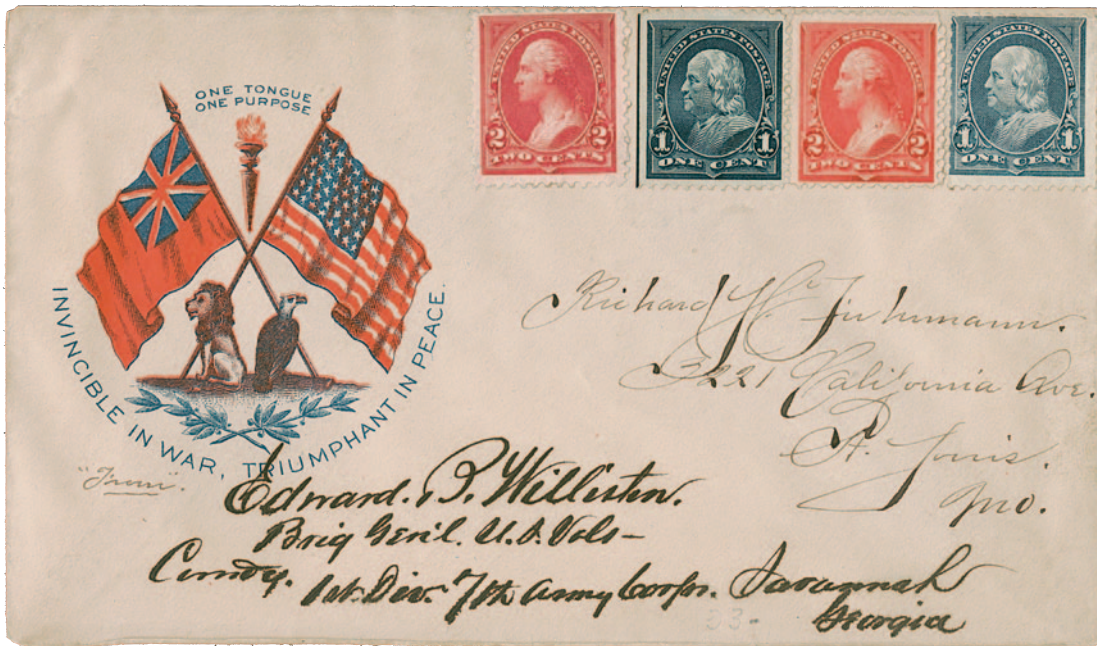 ONE TONGUE
ONE PURPOSE
INVINCIBLE IN WAR, TRIUMPHANT IN PEACE.
UNITED STATES POSTAGE
2 2
TWO CENTS
UNITED STATES POSTAGE
1 1
ONE CENT
UNITED STATES POSTAGE
2 2
TWO CENTS
UNITED STATES POSTAGE
1 1
ONE CENT
Richard H.
3221 California Ave.
St. Louis.
Mo.
"From".
Edward. B. Williston.
Brig Gen'l. U.S. Vols—
Comdg. 1st. Div. 7th Army Corps. Savannah
Georgia
33-